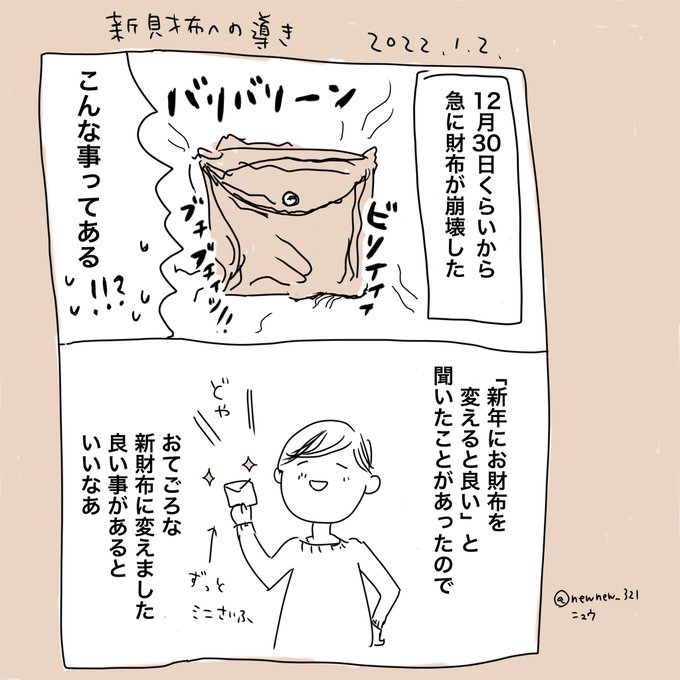 新財布への導き
2022.1.2.
12月30日くらいから
急に財布が崩壊した
バリバリーン
ビリィィィ
ブチブチィッ!!
こんな事ってある
!!?
「新年にお財布を
変えると良い」と
聞いたことがあったので
どや
ずっと
ミニさいふ
おてごろな
新財布に変えました
良い事があると
いいなあ
@newnew_321
ニュウ